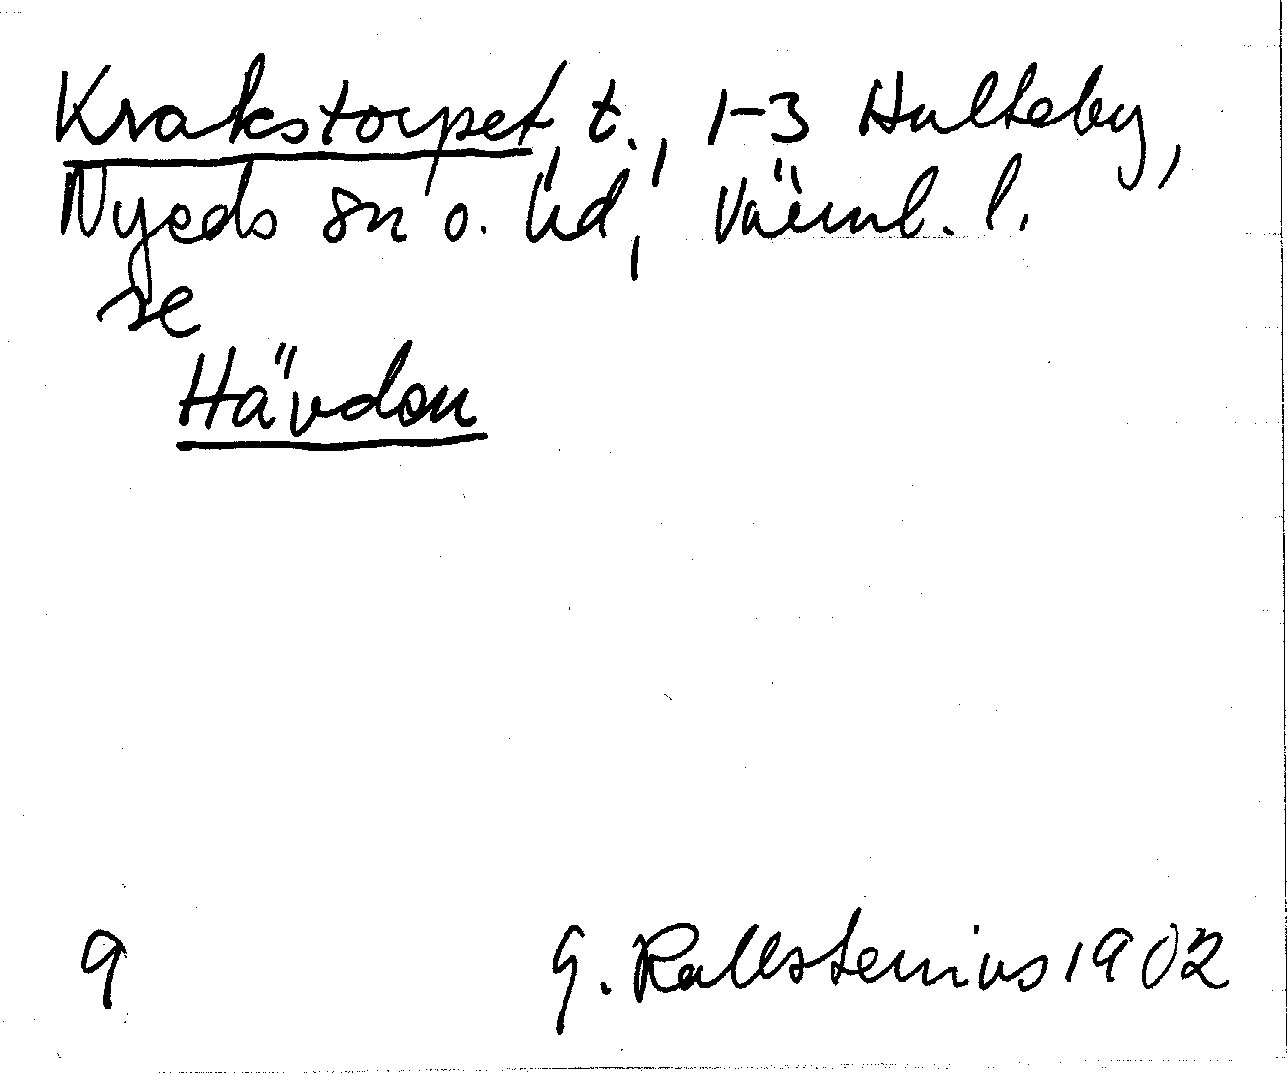 Krakstorpet, t., 1-3 Hulteby,
Nyeds sn o. hd, Värml. l.
se
Hävden
9 G. Kallstenius 1902